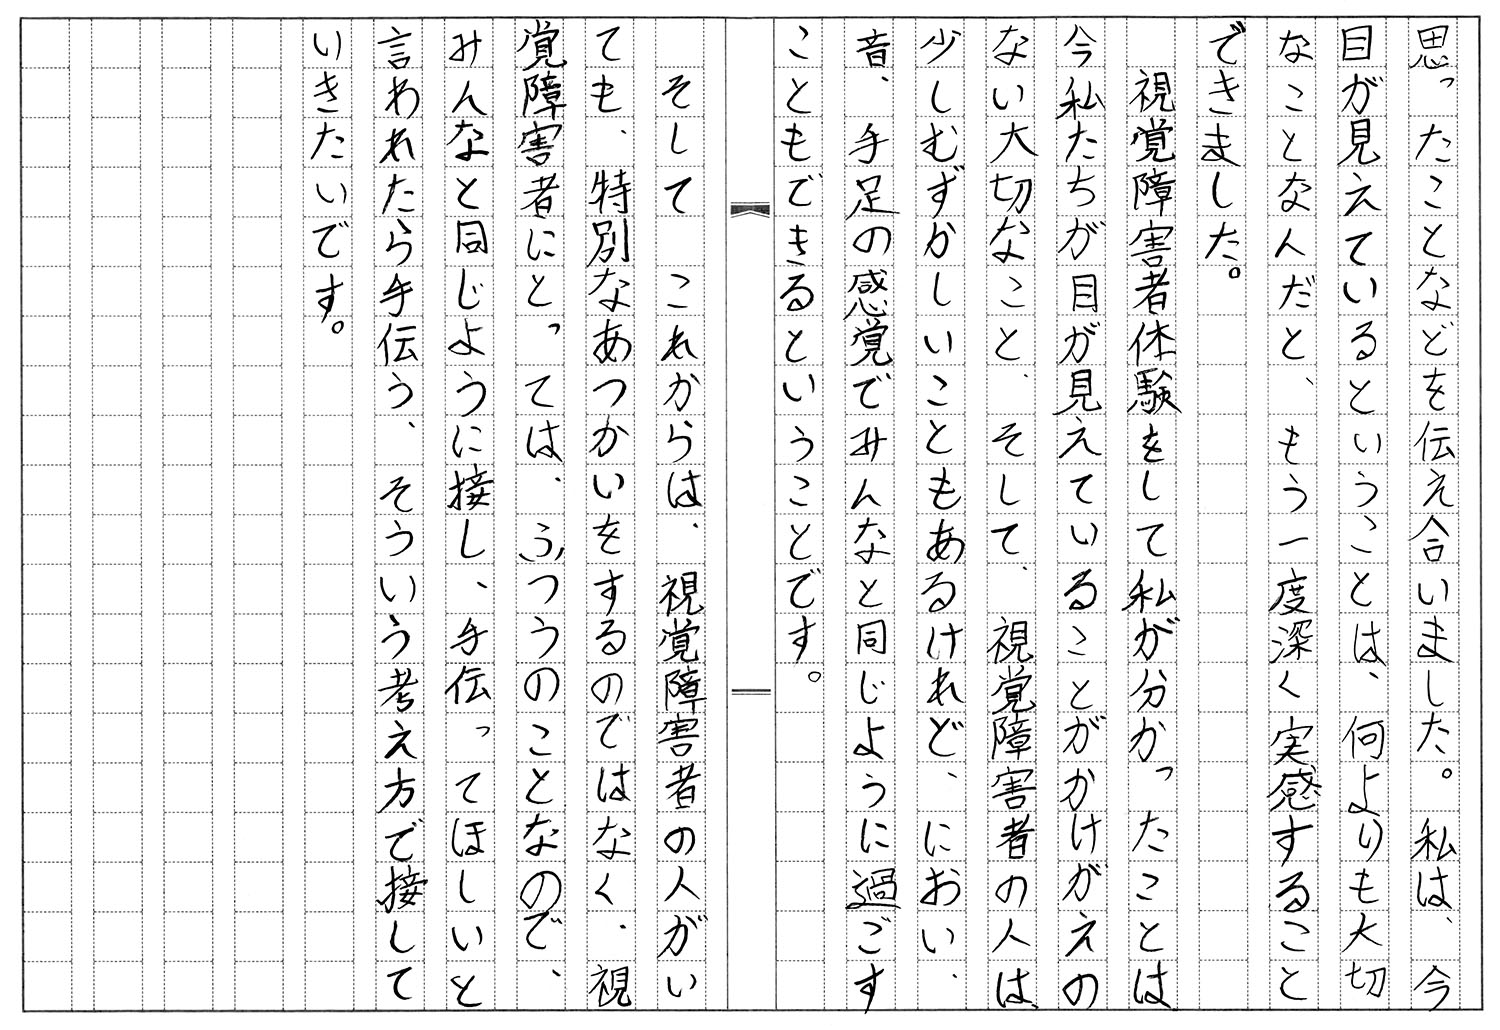 思ったことなどを伝え合いました。私は、今
目が見えているということは、何よりも大切
なことなんだと、もう一度深く実感すること
できました。
視覚障害者体験をして私が分かったことは
今私たちが目が見えていることがかけがえの
ない大切なこと、そして、視覚障害者の人は、
少しむずかしいこともあるけれど、におい、
音、手足の感覚でみんなと同じように過ごす
こともできるということです。
そして これからは、視覚障害者の人がい
ても、特別なあつかいをするのではなく、視
覚障害者にとっては、ふつうのことなので、
みんなと同じように接し、手伝ってほしいと
言われたら手伝う、そういう考え方で接して
いきたいです。